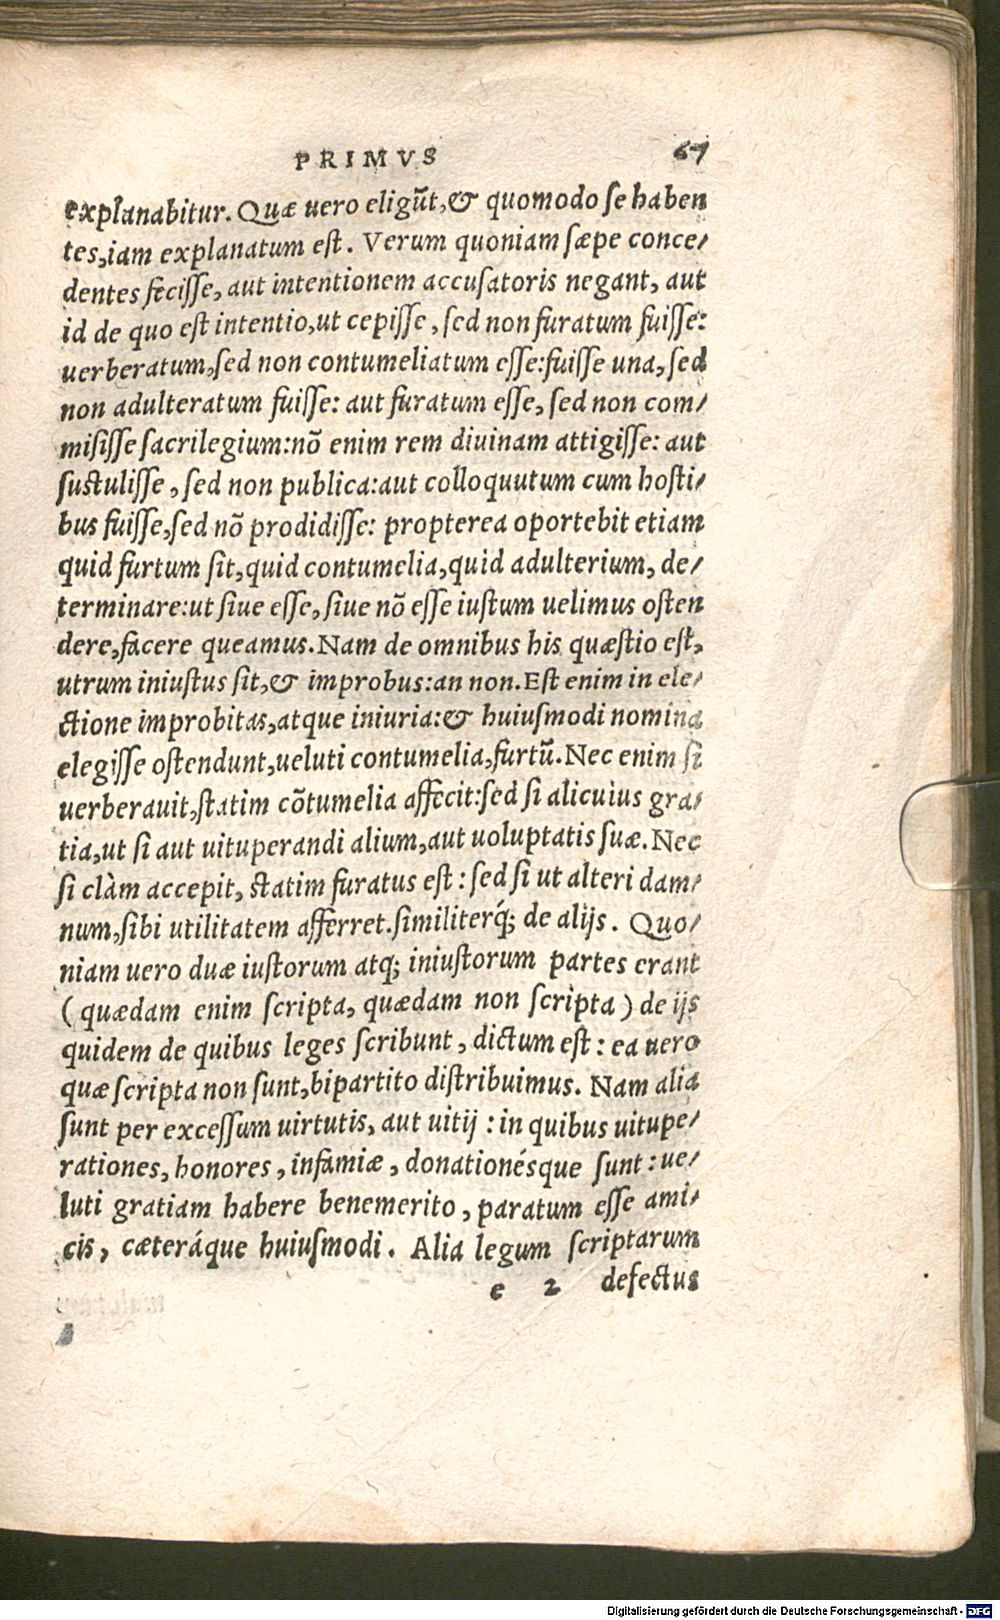 PRIMVS 67
explanabitur. Quæ uero eligũt, & quomodo ſe haben
tes, iam explanatum eſt. Verum quoniam ſæpe conce/
dentes feciſſe, aut intentionem accuſatoris negant, aut
id de quo eſt intentio, ut cepiſſe, ſed non furatum fuiſſe:
uerberatum, ſed non contumeliatum eſſe: fuiſſe una, ſed
non adulteratum fuiſſe: aut furatum eſſe, ſed non com/
miſiſſe ſacrilegium: nõ enim rem diuinam attigiſſe: aut
ſuſtuliſſe, ſed non publica: aut colloquutum cum hoſti/
bus fuiſſe, ſed nõ prodidiſſe: propterea oportebit etiam
quid furtum ſit, quid contumelia, quid adulterium, de/
terminare: ut ſiue eſſe, ſiue nõ eſſe iuſtum uelimus oſten
dere, facere queamus. Nam de omnibus his quæſtio eſt,
utrum iniuſtus ſit, & improbus: an non. Eſt enim in ele/
ctione improbitas, atque iniuria: & huiuſmodi nomina
elegiſſe oſtendunt, ueluti contumelia, furtũ. Nec enim ſi
uerberauit, ſtatim cõtumelia affecit: ſed ſi alicuius gra/
tia, ut ſi aut uituperandi alium, aut uoluptatis ſuæ. Nec
ſi clàm accepit, ſtatim furatus eſt: ſed ſi ut alteri dam/
num, ſibi utilitatem afferret. ſimiliterq́; de alijs. Quo/
niam uero duæ iuſtorum atq; iniuſtorum partes erant
(quædam enim ſcripta, quædam non ſcripta) de ijs
quidem de quibus leges ſcribunt, dictum eſt: ea uero
quæ ſcripta non ſunt, bipartito diſtribuimus. Nam alia
ſunt per exceſſum uirtutis, aut uitij: in quibus uitupe/
rationes, honores, infamiæ, donationésque ſunt: ue/
luti gratiam habere benemerito, paratum eſſe ami/
cis, cæteráque huiuſmodi. Alia legum ſcriptarum
e 2 defectus
Digitalisierung gefördert durch die Deutsche Forschungsgemeinschaft - DFG